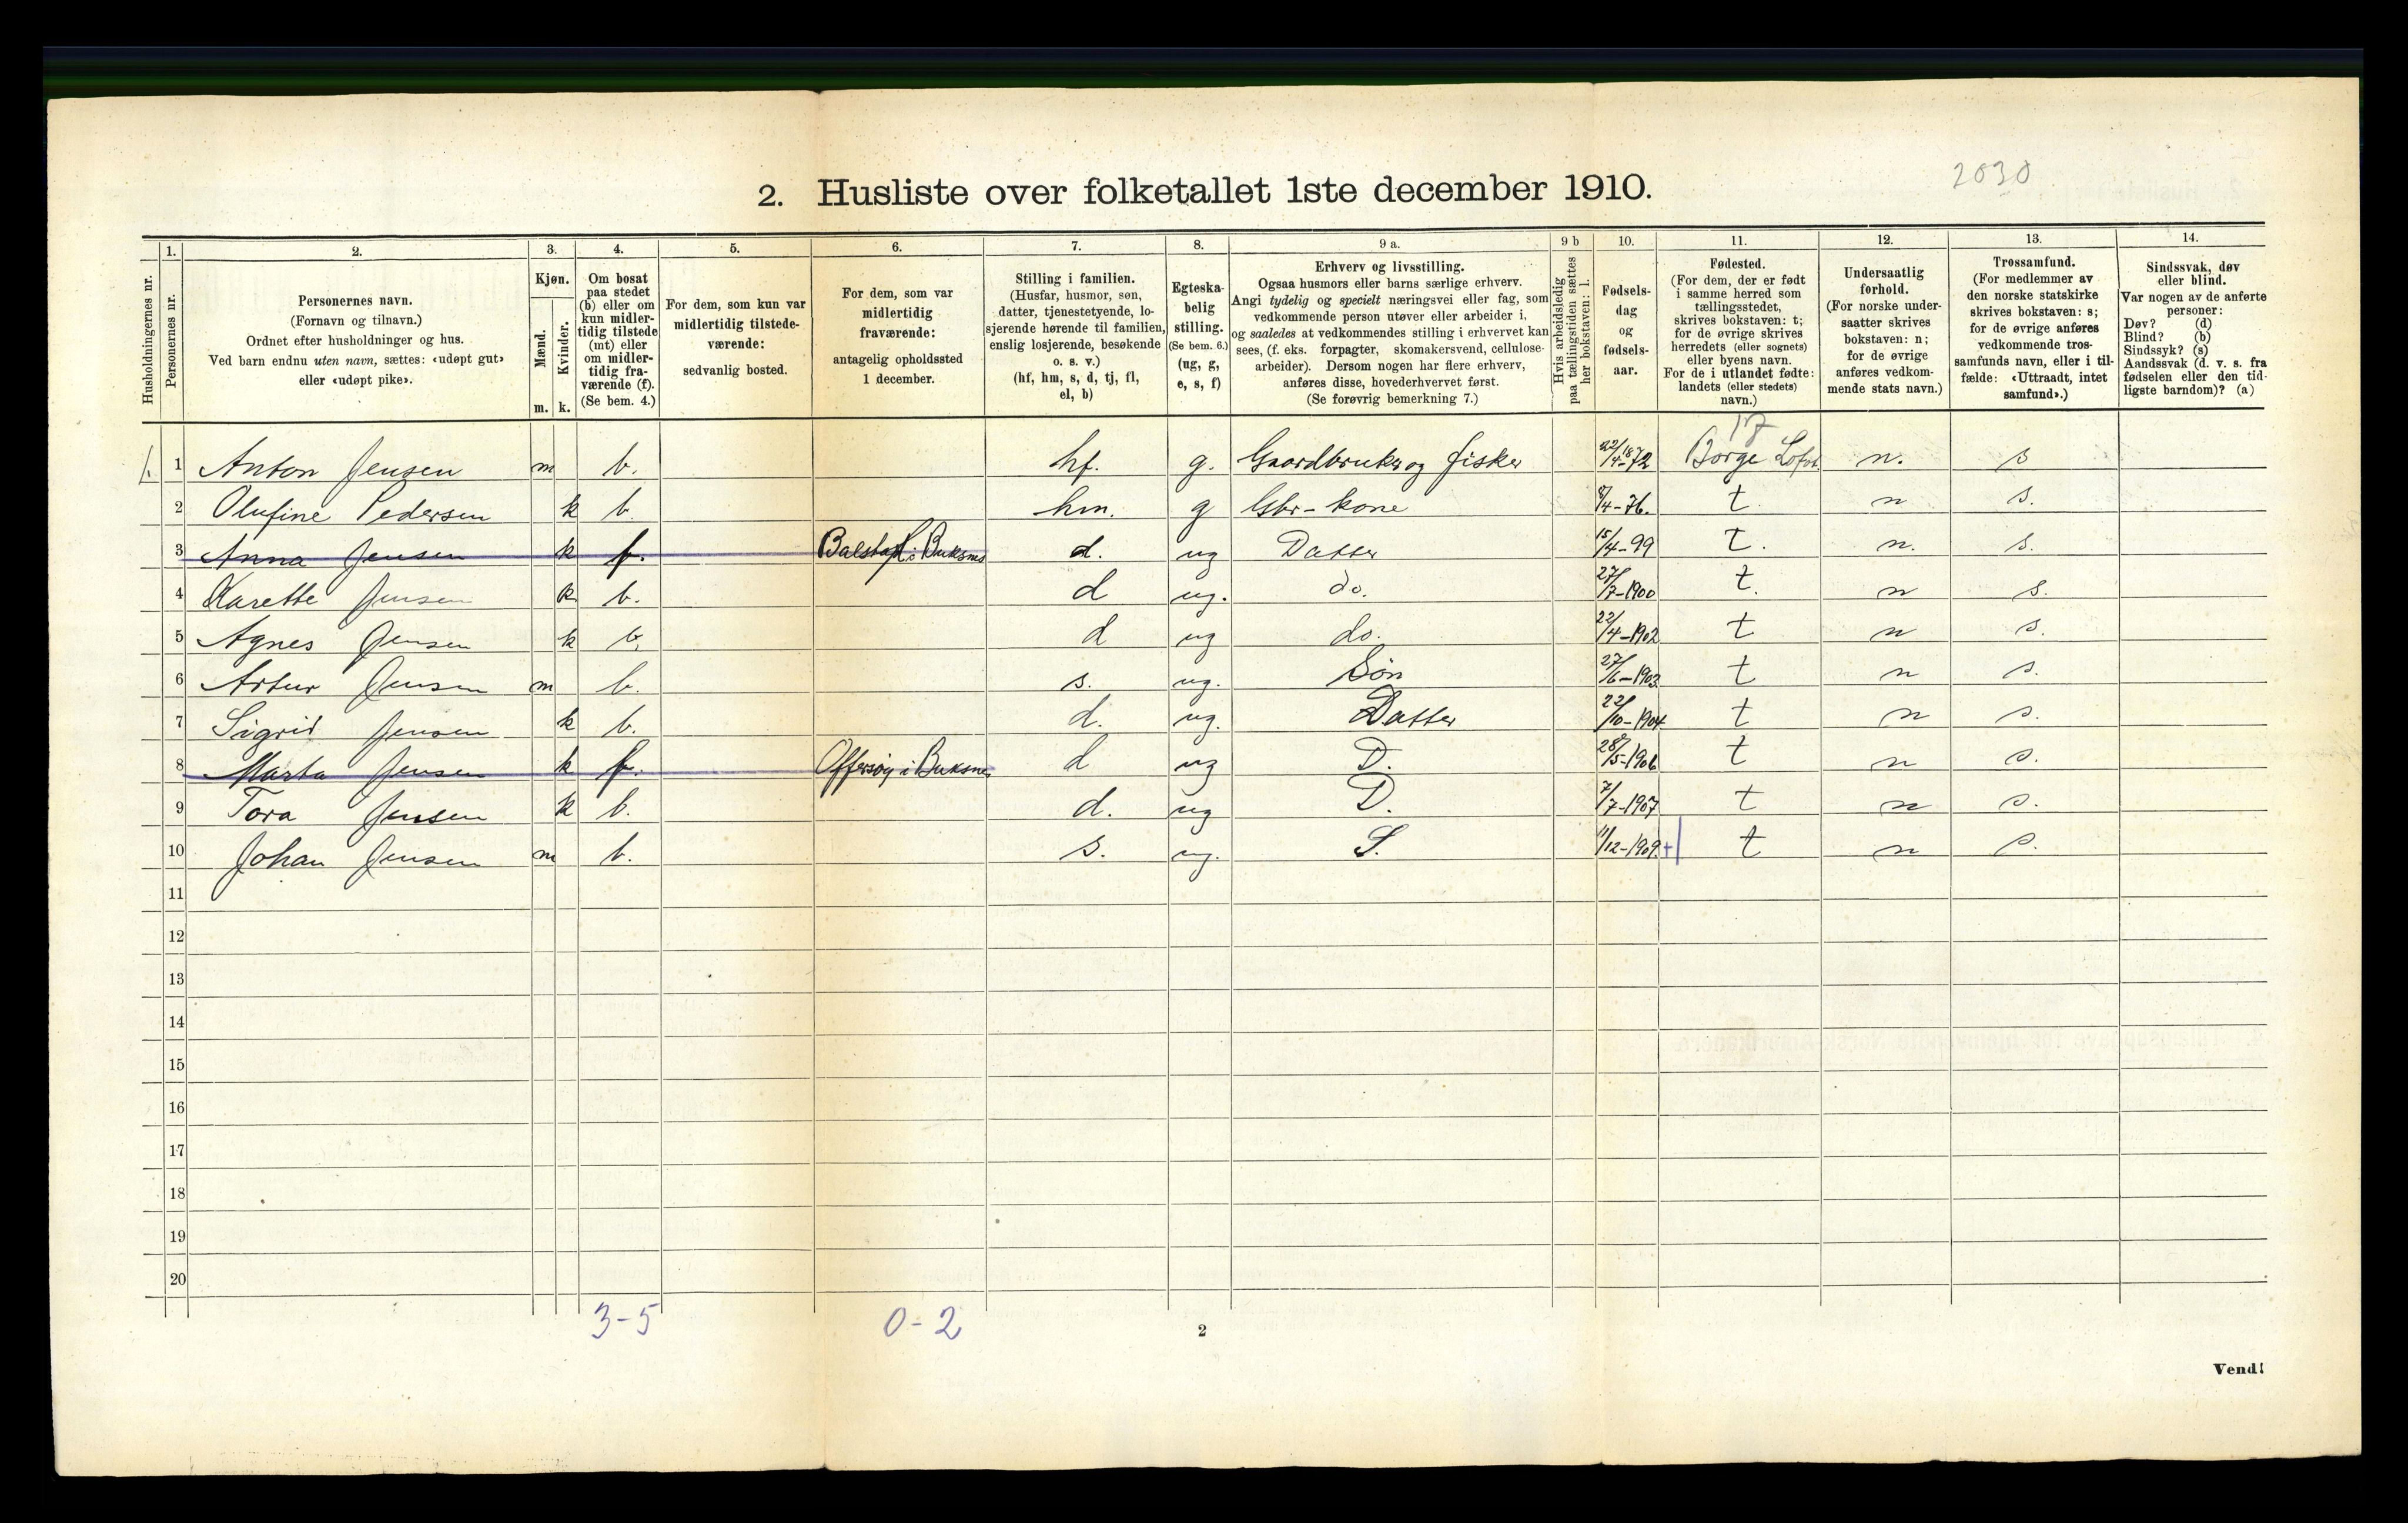 2030
2. Husliste over folketallet 1ste december 1910.
1. 2. 3. 4. 5. 6. 7. 8. 9 a. 9 b 10. 11. 12. 13. 14.
Husholdningernes nr.
Personernes nr.
Personernes navn.
(Fornavn og tilnavn.)
Ordnet efter husholdninger og hus.
Ved barn endnu uten navn, sættes: «udøpt gut»
eller «udøpt pike».
Kjøn.
Mænd.
Kvinder.
m. k.
Om bosat
paa stedet
(b) eller om
kun midler-
tidig tilstede
(mt) eller
om midler-
tidig fra-
værende (f).
(Se bem. 4.)
For dem, som kun var
midlertidig tilstede-
værende:
sedvanlig bosted.
For dem, som var
midlertidig
fraværende:
antagelig opholdssted
1 december.
Stilling i familien.
(Husfar, husmor, søn,
datter, tjenestetyende, lo-
sjerende hørende til familien,
enslig losjerende, besøkende
o. s. v.)
(hf, hm, s, d, tj, fl,
el, b)
Egteska-
belig
stilling.
(Se bem. 6.)
(ug, g,
e, s, f)
Erhverv og livsstilling.
Ogsaa husmors eller barns særlige erhverv.
Angi tydelig og specielt næringsvei eller fag, som
vedkommende person utøver eller arbeider i,
og saaledes at vedkommendes stilling i erhvervet kan
sees, (f. eks. forpagter, skomakersvend, cellulose-
arbeider). Dersom nogen har flere erhverv,
anføres disse, hovederhvervet først.
(Se forøvrig bemerkning 7.)
Hvis arbeidsledig
paa tællingstiden sættes
her bokstaven: l.
Fødsels-
dag
og
fødsels-
aar.
Fødested.
(For dem, der er født
i samme herred som
tællingsstedet,
skrives bokstaven: t;
for de øvrige skrives
herredets (eller sognets)
eller byens navn.
For de i utlandet fødte:
landets (eller stedets)
navn.)
Undersaatlig
forhold.
(For norske under-
saatter skrives
bokstaven: n;
for de øvrige
anføres vedkom-
mende stats navn.)
Trossamfund.
(For medlemmer av
den norske statskirke
skrives bokstaven: s;
for de øvrige anføres
vedkommende tros-
samfunds navn, eller i til-
fælde: «Uttraadt, intet
samfund».)
Sindssvak, døv
eller blind.
Var nogen av de anførte
personer:
Døv? (d)
Blind? (b)
Sindssyk? (s)
Aandssvak (d. v. s. fra
fødselen eller den tid-
ligste barndom)? (a)
17
1. 1 Anton Jensen m b. hf. g. Gaardbruker og fisker 22/4-1872 Borge Lofot n. s
2 Olufine Pedersen k b. hm. g Gbr-kone 8/4-76. t. n s.
3 Anna Jensen k f. Balstad i Buksnes d. ug Datter 15/4-99 t. n. s.
4 Karette Jensen k b. d ug. do. 27/7-1900 t. n s.
5 Agnes Jensen k b. d ug do. 22/4-1902 t n s.
6 Artur Jensen m b. s. ug. Søn 27/6-1903 t n s.
7 Sigrid Jensen k b. d. ug. Datter 22/10-1904 t n s.
8 Marta Jensen k f. Offersøy i Buksnes d ug D. 28/5-1906 t n s.
9 Tora Jensen k b. d. ug D. 7/7-1907 t n s.
10 Johan Jensen m b. s. ug. S. 11/12-1909 + t n s.
11
12
13
14
15
16
17
18
19
20
3-5 0-2
2
Vend!